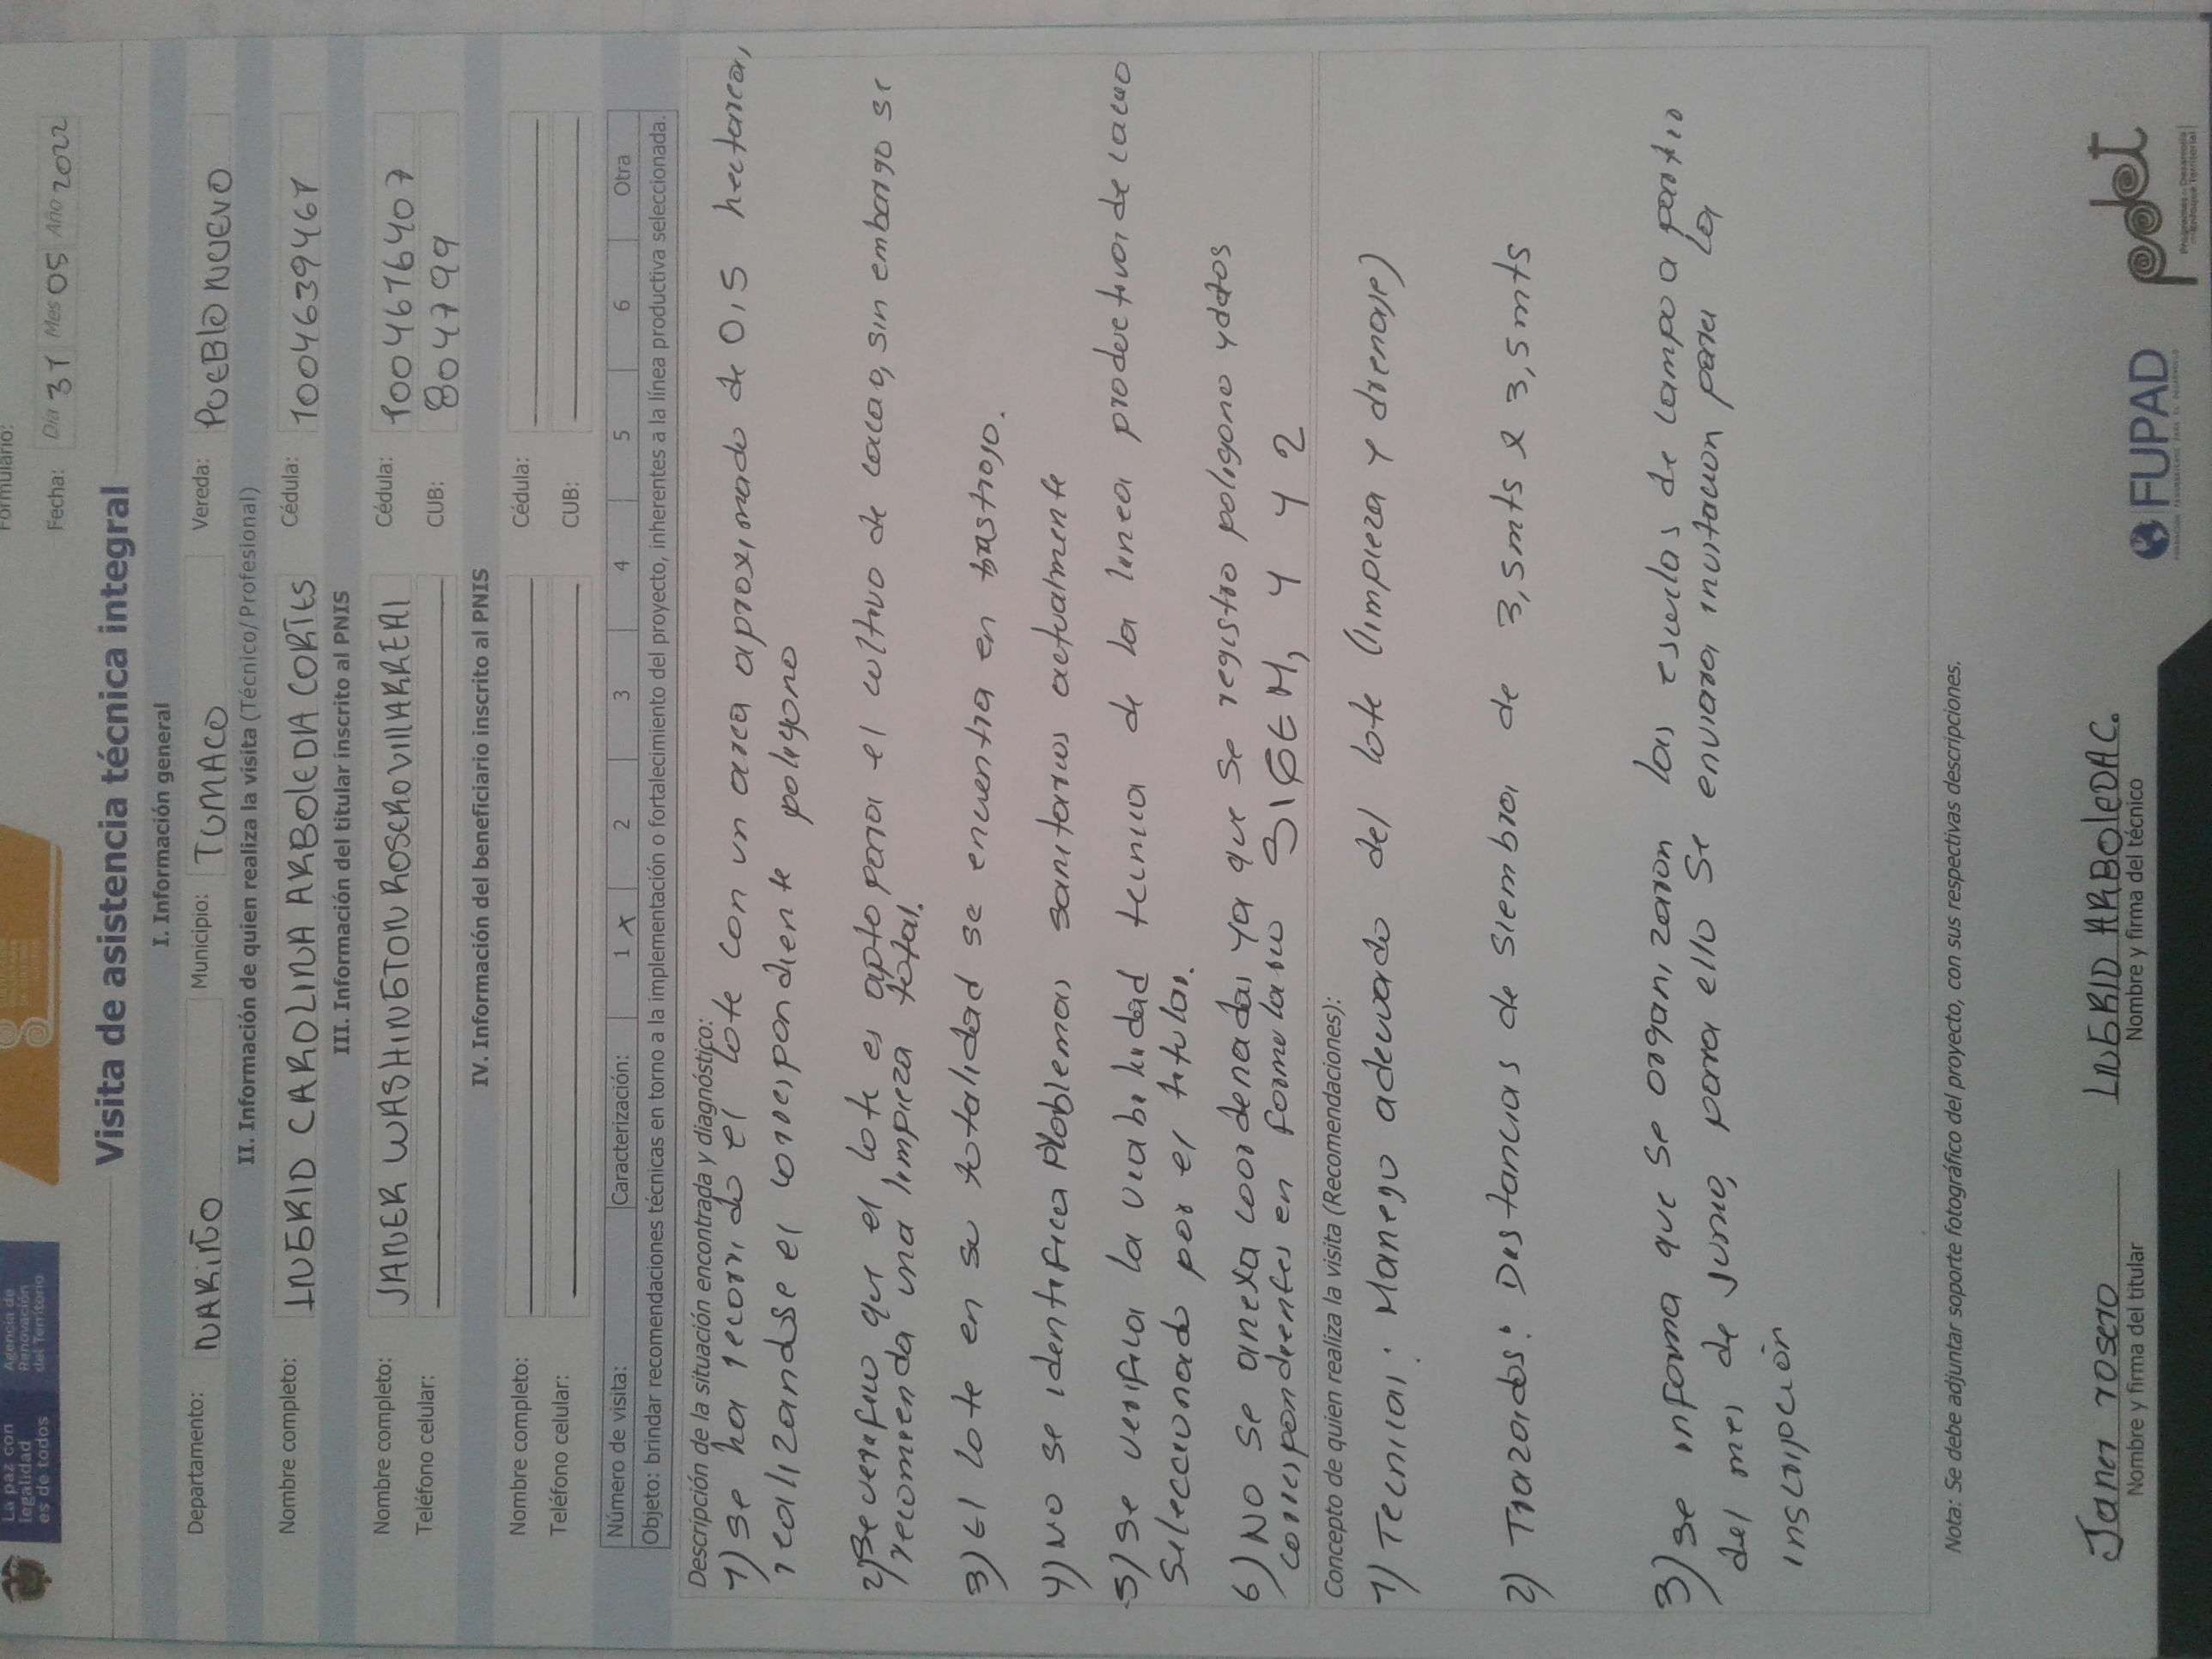 La paz con
legalidad
es de todos
Agencia de
Renovación
del Territorio
Formulario:
Fecha: Día 31 Mes 05 Año 2022
Visita de asistencia técnica integral
I. Información general
Departamento: NARIÑO Municipio: TUMACO Vereda: PUEBLO NUEVO
II. Información de quien realiza la visita (Técnico/ Profesional)
Nombre completo: INGRID CAROLINA ARBOLEDA CORTES Cédula: 1004639461
III. Información del titular inscrito al PNIS
Nombre completo: JANER WASHINGTON ROSERO VILLARREAL Cédula: 1004676407
Teléfono celular: CUB: 804799
IV. Información del beneficiario inscrito al PNIS
Nombre completo: Cédula:
Teléfono celular: CUB:
Número de visita: Caracterización: 1 X 2 3 4 5 6 Otra
Objeto: brindar recomendaciones técnicas en torno a la implementación o fortalecimiento del proyecto, inherentes a la línea productiva seleccionada.
Descripción de la situación encontrada y diagnóstico:
1) se ha recorrido el lote con un area aproximado de 0,5 hectarea,
realizandose el correspondiente poligono
2) Se verifico que el lote es apto para el cultivo de cacao, sin embargo se
recomienda una limpieza total.
3) El lote en su totalidad se encuentra en rastrojo.
4) No se identifica Problemas sanitarios actualmente
5) Se verifica la viabilidad tecnica de la linea productiva de cacao
seleccionado por el titular.
6) No se anexa coordenadas ya que se registro poligono y datos
correspondientes en formulario SIGEM, 4 y 2
Concepto de quien realiza la visita (Recomendaciones):
1) Tecnica: Manejo adecuado del lote (limpieza y drenaje)
2) Trazados: Distancias de siembra de 3,5mts x 3,5mts
3) se informa que se organizaron las escuelas de campo a partir
del mes de Junio, para ello se enviara invitacion para la
inscripción
Nota: Se debe adjuntar soporte fotográfico del proyecto, con sus respectivas descripciones.
Janer rosero
Nombre y firma del titular
INGRID ARBOLEDA C.
Nombre y firma del técnico
FUPAD
pdet
Programas de Desarrollo
con Enfoque Territorial